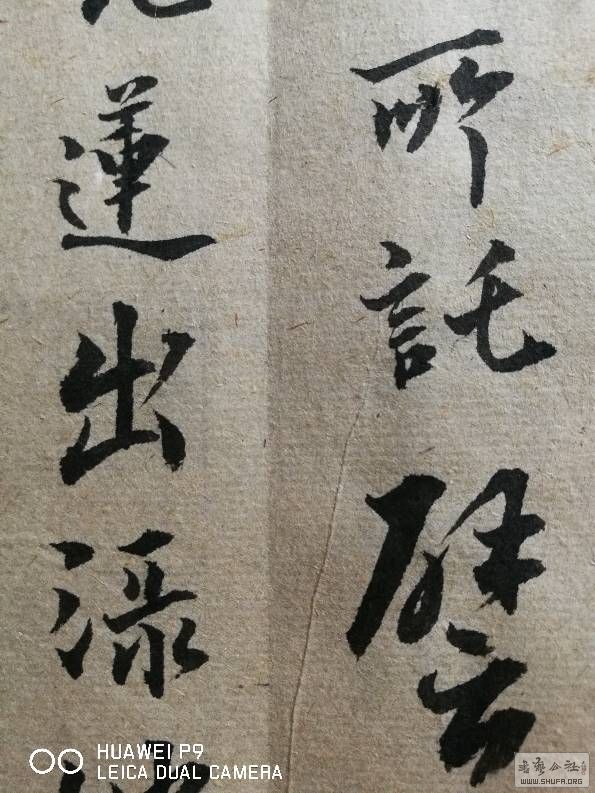 所託譬
蓮出淥
HUAWEI P9
LEICA DUAL CAMERA
WWW.SHUFA.ORG